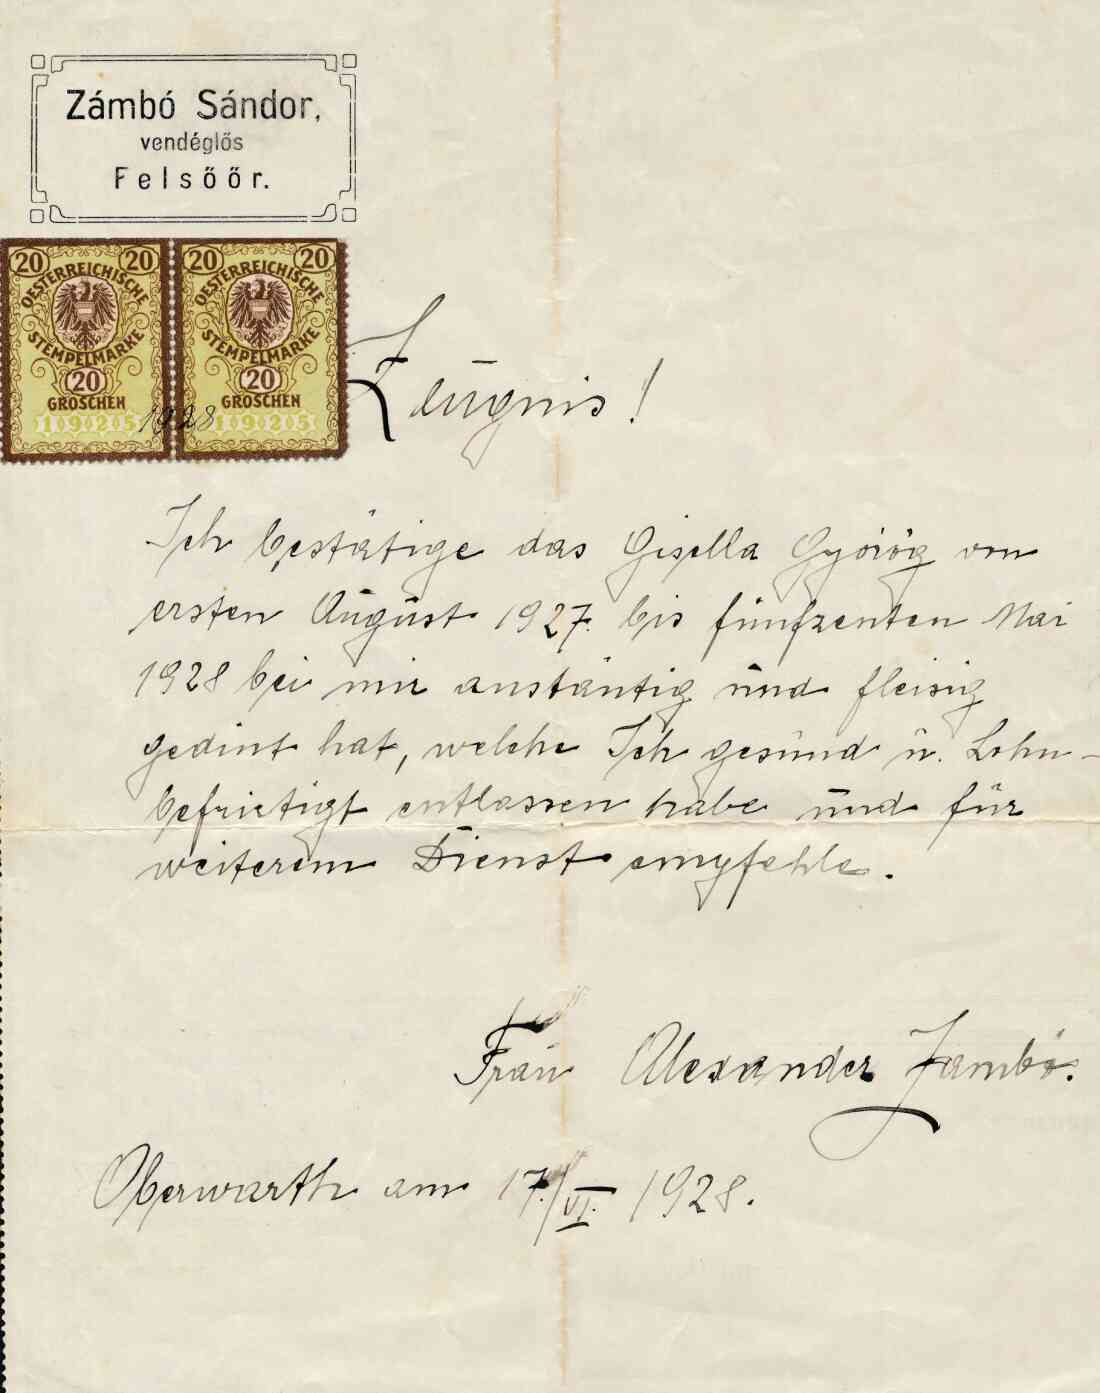 Zámbó Sándor,
vendéglős
Felsőőr.
20 20
OESTERREICHISCHE
STEMPELMARKE
20
GROSCHEN
1925
20 20
OESTERREICHISCHE
STEMPELMARKE
20
GROSCHEN
1925
1928
Zeugnis!
Ich bestätige das Gisella György von
ersten August 1927. bis fünfzenten Mai
1928 bei mir anstäntig und fleisig
gedint hat, welche Ich gesund u. Lohn-
befrietigt entlassen habe und für
weiterem Dienst empfehle.
Frau Alexander Zambó.
Oberwarth am 17./VI. 1928.